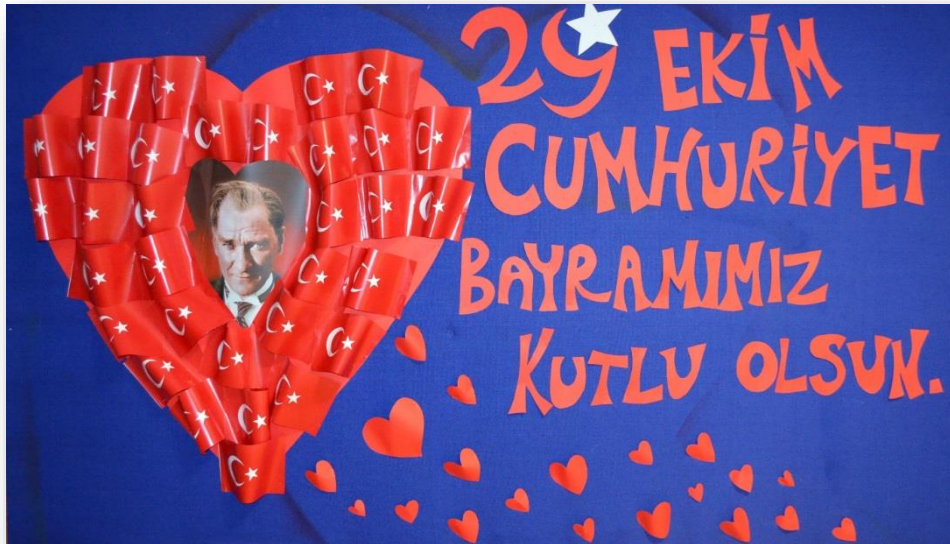 29 EKİM
CUMHURİYET
BAYRAMIMIZ
KUTLU OLSUN.